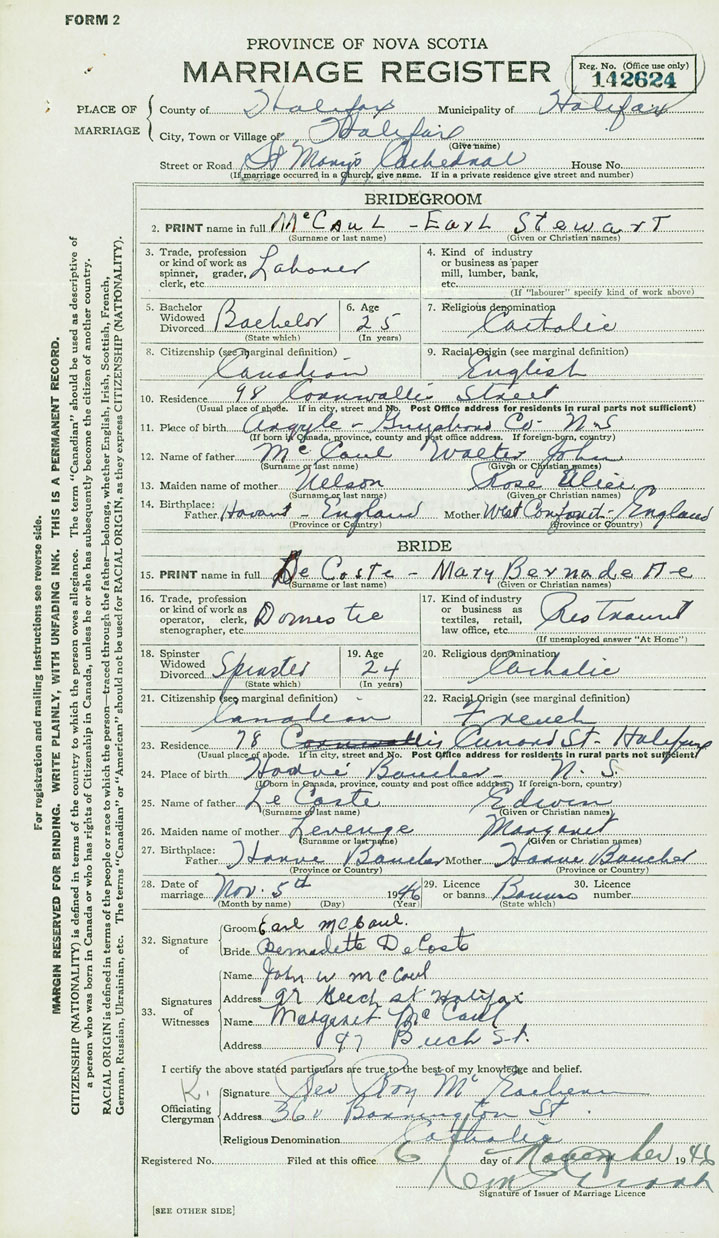 FORM 2
PROVINCE OF NOVA SCOTIA
MARRIAGE REGISTER
Reg. No. (Office use only)
142624
PLACE OF MARRIAGE
County of Halifax Municipality of Halifax
City, Town or Village of Halifax
(Give name)
Street or Road St Mary's Cathedral House No.
(If marriage occurred in a Church, give name. If in a private residence give street and number)
BRIDEGROOM
2. PRINT name in full McCaul - Earl Stewart
(Surname or last name) (Given or Christian names)
3. Trade, profession or kind of work as spinner, grader, clerk, etc. Laborer
4. Kind of industry or business as paper mill, lumber, bank, etc.
(If "labourer" specify kind of work above)
5. Bachelor Widowed Divorced Bachelor
(State which)
6. Age 25
(In years)
7. Religious denomination Catholic
8. Citizenship (see marginal definition) Canadian
9. Racial Origin (see marginal definition) English
10. Residence 98 Cornwallis Street
(Usual place of abode. If in city, street and No. Post Office address for residents in rural parts not sufficient)
11. Place of birth Argyle - Guysboro Co - N-S
(If born in Canada, province, county and post office address. If foreign-born, country)
12. Name of father McCaul Walter John
(Surname or last name) (Given or Christian names)
13. Maiden name of mother Nelson Rose Alice
(Surname or last name) (Given or Christian names)
14. Birthplace: Father Havant - England Mother West - England
(Province or Country) (Province or Country)
BRIDE
15. PRINT name in full De Coste - Mary Bernadette
(Surname or last name) (Given or Christian names)
16. Trade, profession or kind of work as operator, clerk, stenographer, etc. Domestic
17. Kind of industry or business as textiles, retail, law office, etc. Restraunt
(If unemployed answer "At Home")
18. Spinster Widowed Divorced Spinster
(State which)
19. Age 24
(In years)
20. Religious denomination Catholic
21. Citizenship (see marginal definition) Canadian
22. Racial Origin (see marginal definition) French
23. Residence 78 Cornwallis Cunard St. Halifax
(Usual place of abode. If in city, street and No. Post Office address for residents in rural parts not sufficient)
24. Place of birth Havre Boucher - N.S.
(If born in Canada, province, county and post office address. If foreign-born, country)
25. Name of father De Coste Edwin
(Surname or last name) (Given or Christian names)
26. Maiden name of mother Levenge Margaret
(Surname or last name) (Given or Christian names)
27. Birthplace: Father Havre Boucher Mother Havre Boucher
(Province or Country) (Province or Country)
28. Date of marriage Nov. 5th 1946
(Month by name) (Day) (Year)
29. Licence or banns Banns
(State which)
30. Licence number
32. Signature of
Groom Earl McCaul.
Bride Bernadette DeCoste
33. Signatures of Witnesses
Name John W McCaul
Address 97 Beech st Halifax
Name Margaret McCaul
Address 97 Beech St.
I certify the above stated particulars are true to the best of my knowledge and belief.
K.
Officiating Clergyman
Signature Rev Roy McEachern
Address 360 Barrington St.
Religious Denomination Catholic
Registered No. Filed at this office 6 day of November 1946
Signature of Issuer of Marriage Licence
[SEE OTHER SIDE]
For registration and mailing instructions see reverse side.
MARGIN RESERVED FOR BINDING. WRITE PLAINLY, WITH UNFADING INK. THIS IS A PERMANENT RECORD.
CITIZENSHIP (NATIONALITY) is defined in terms of the country to which the person owes allegiance. The term "Canadian" should be used as descriptive of
a person who was born in Canada or who has rights of Citizenship in Canada, unless he or she has subsequently become the citizen of another country.
RACIAL ORIGIN is defined in terms of the people or race to which the person—traced through the father—belongs, whether English, Irish, Scottish, French,
German, Russian, Ukrainian, etc. The terms "Canadian" or "American" should not be used for RACIAL ORIGIN, as they express CITIZENSHIP (NATIONALITY).